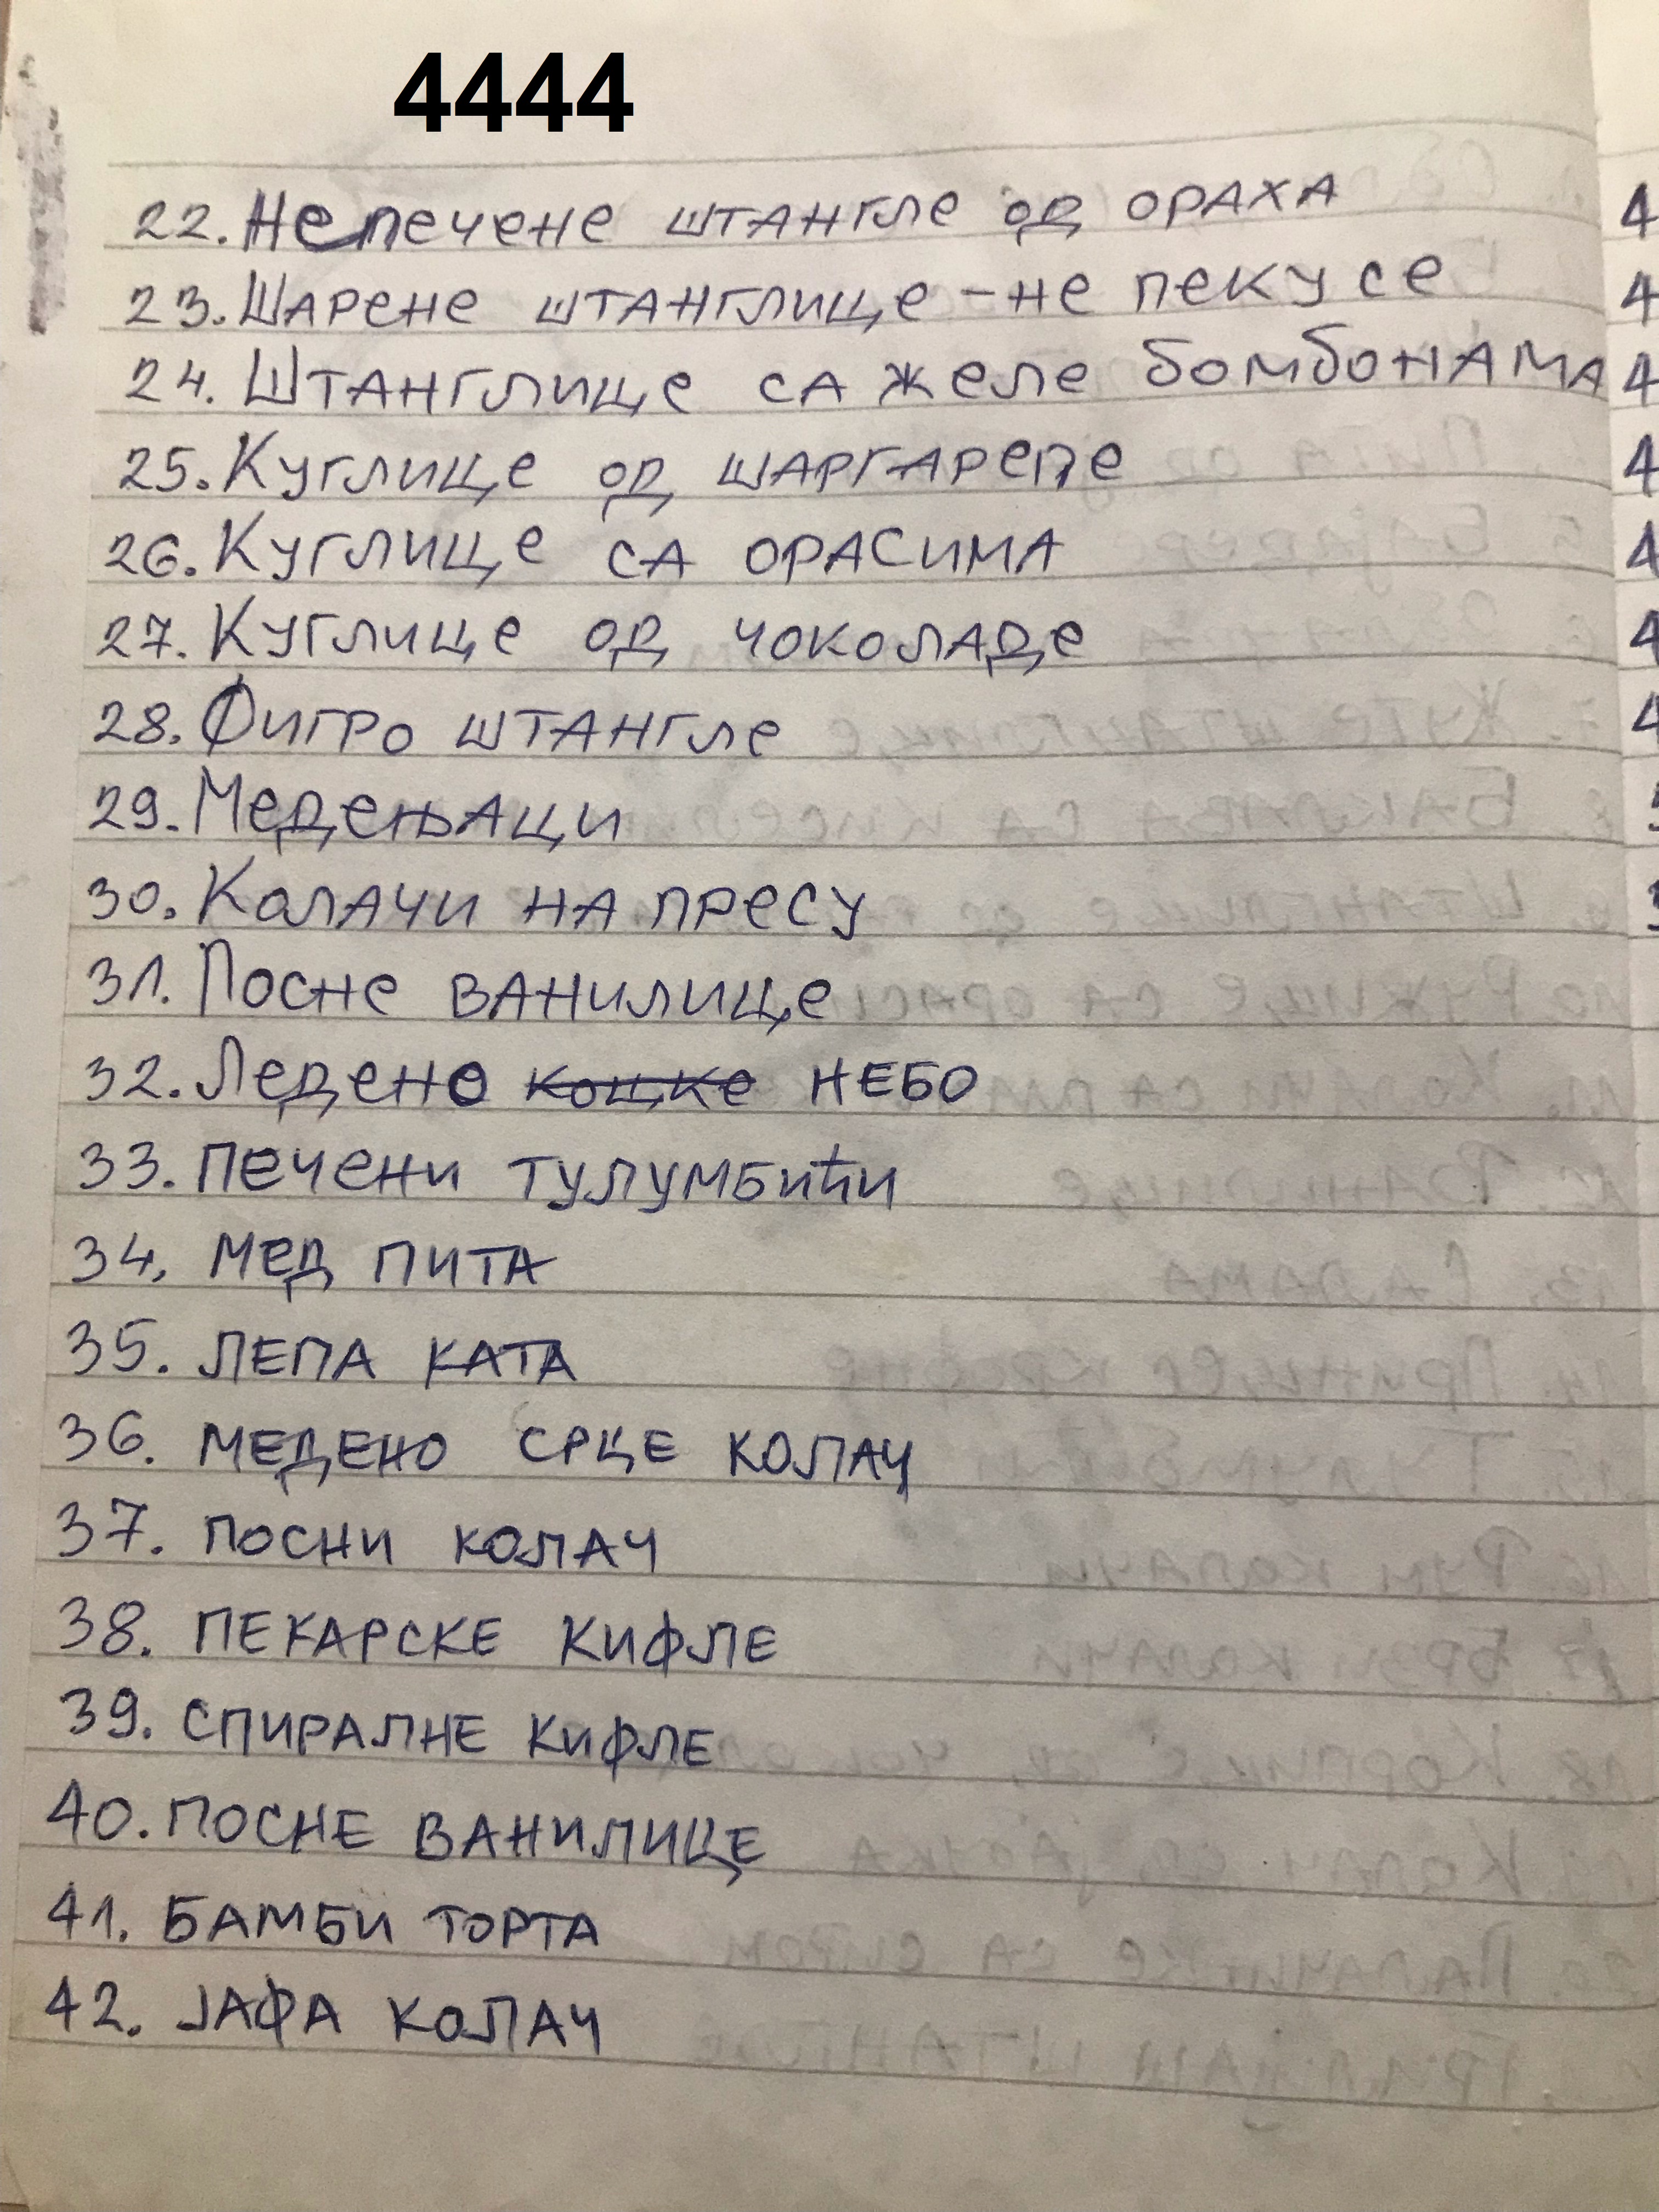 4444
22. Непечене штангле од ораха
23. Шарене штанглице - не пеку се
24. Штанглице са желе бомбонама
25. Куглице од шаргарепе
26. Куглице са орасима
27. Куглице од чоколаде
28. Фигро штангле
29. Медењаци
30. Колачи на пресу
31. Посне ванилице
32. Ледено коцке НЕБО
33. Печени тулумбићи
34. Мед пита
35. ЛЕПА КАТА
36. МЕДЕНО СРЦЕ КОЛАЧ
37. ПОСНИ КОЛАЧ
38. ПЕКАРСКЕ КИФЛЕ
39. СПИРАЛНЕ КИФЛЕ
40. ПОСНЕ ВАНИЛИЦЕ
41. БАМБИ ТОРТА
42. ЈАФА КОЛАЧ